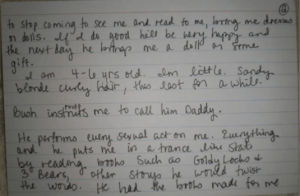 to stop coming to see me and read to me, bring me dresses
or dolls. If I do good he'll be very happy and
the next day he brings me a doll or some
gift.
I am 4-6 yrs old. Im little. Sandy
blonde curly hair, this last for a while.
Bush instructs me to call him Daddy.
He performs every sexual act on me. Everything
and he puts me in a trance like state
by reading books such as Goldy Locks &
3 Bears, other storys he would twist
the words. He had the books made for me